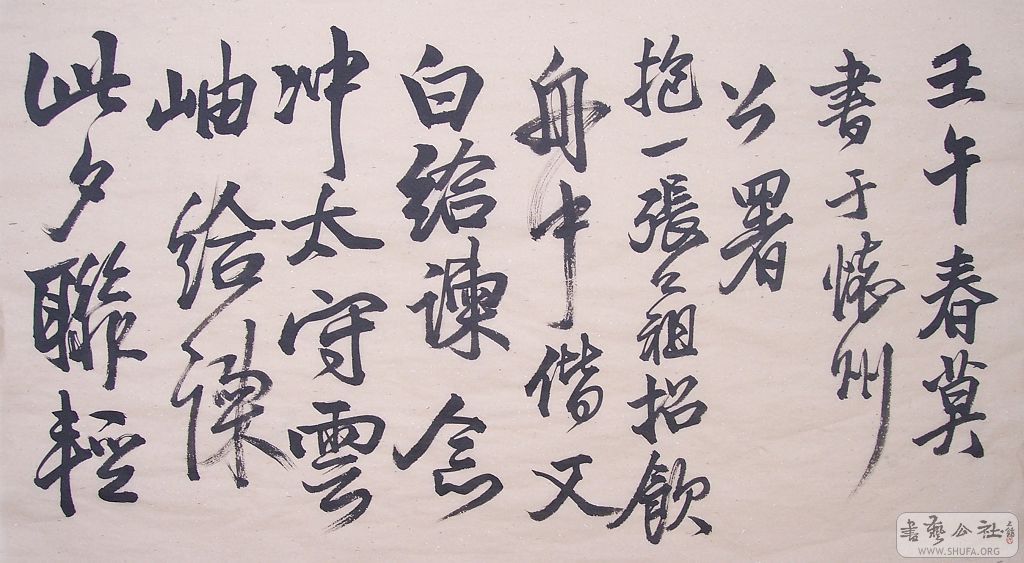 壬午春莫
書于懷州
公署
抱一張公祖招飲
舟中偕文
白給諫念
冲太守雲
岫給諫
此夕聯輕
書藝公社
WWW.SHUFA.ORG